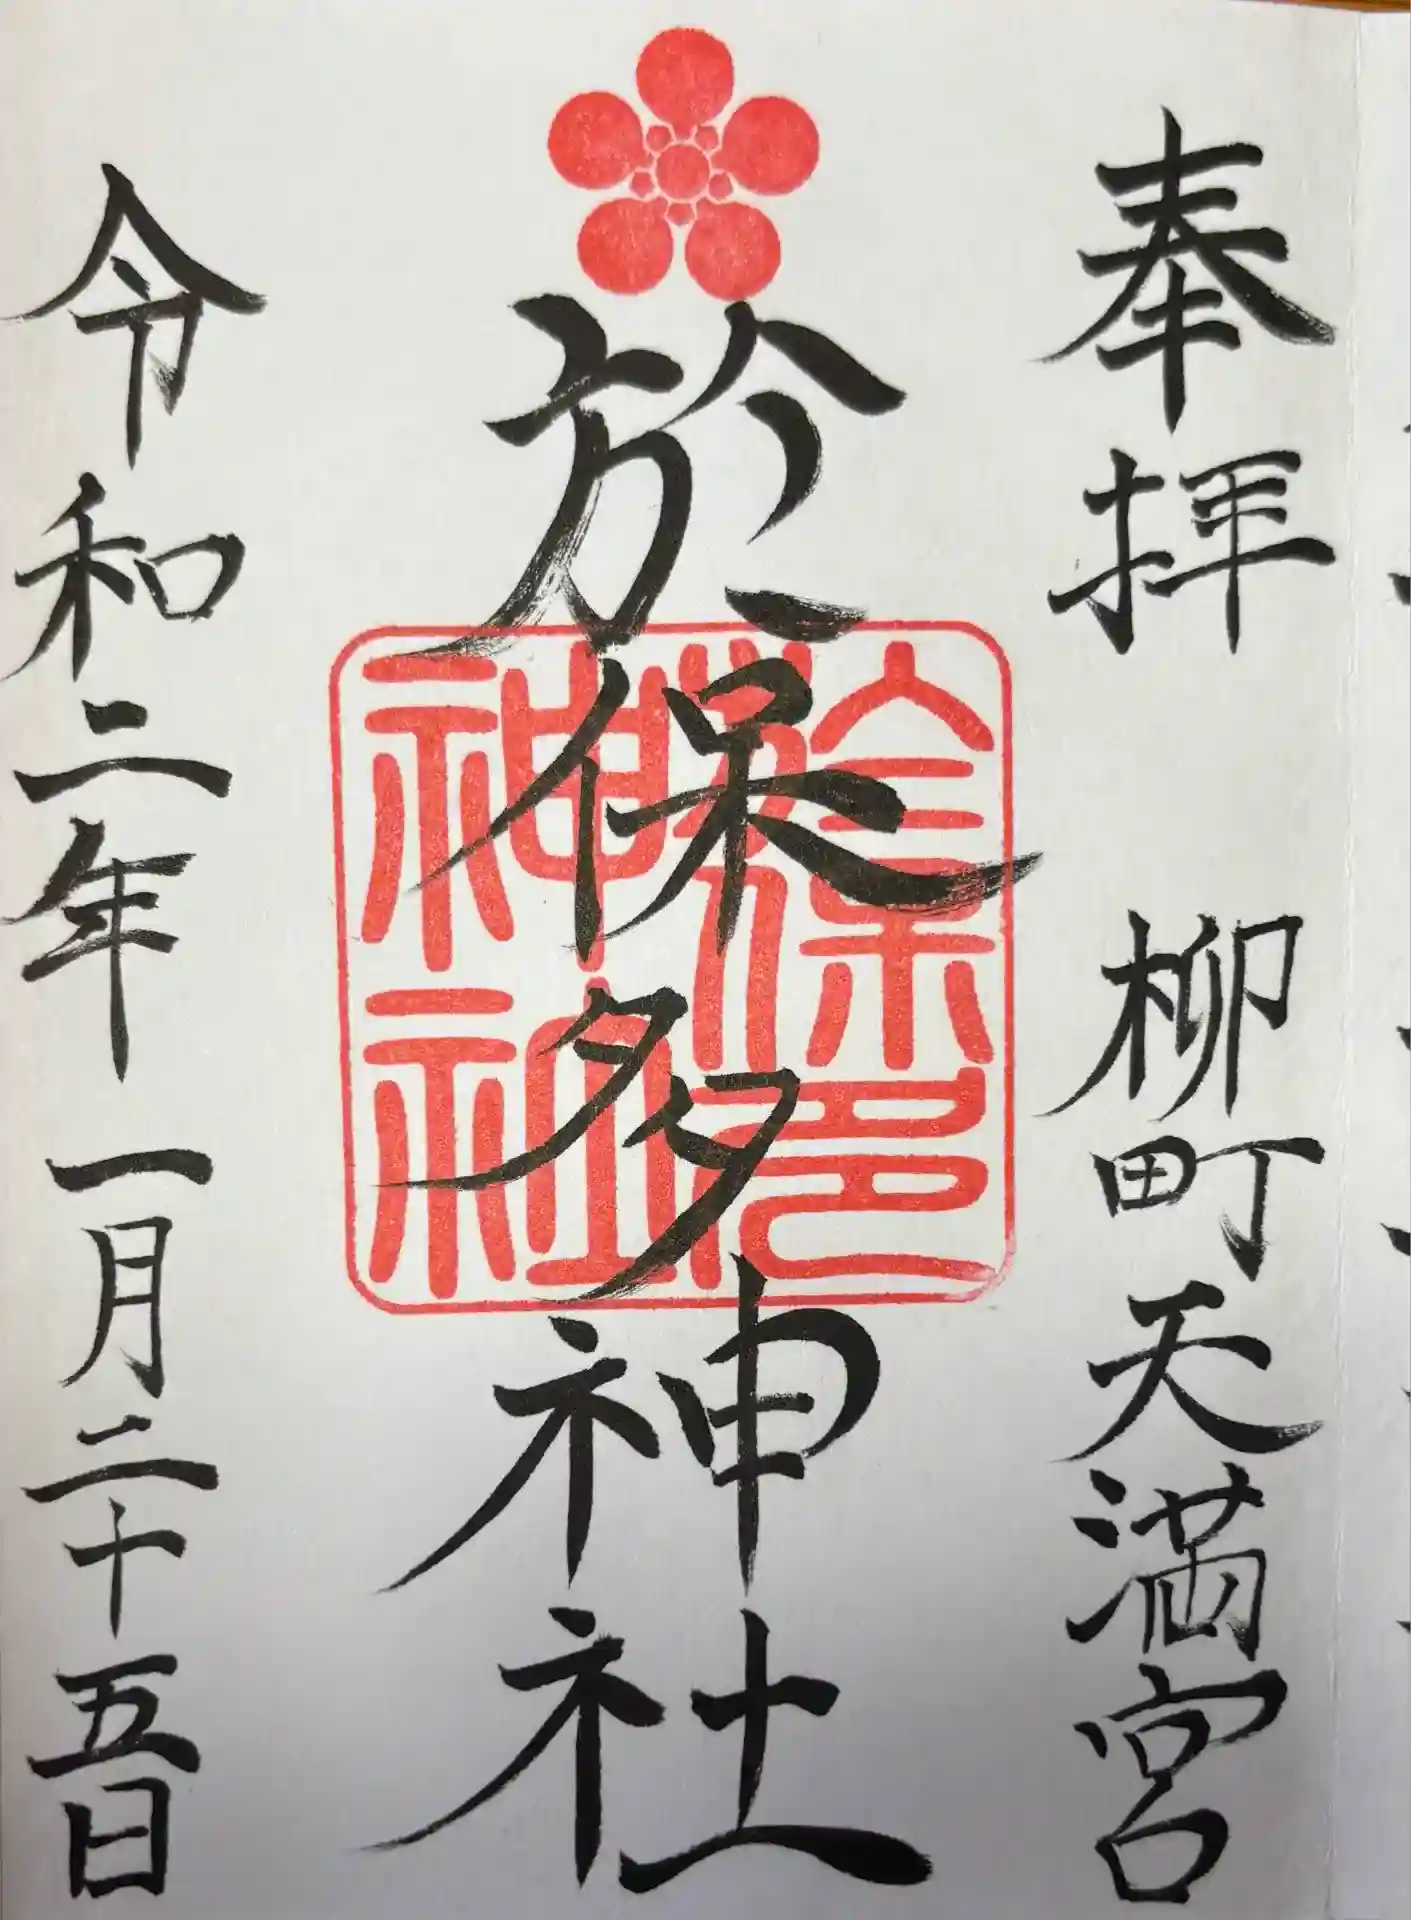 奉拝　柳町天満宮
於保多神社
於保多
神社
令和二年一月二十五日